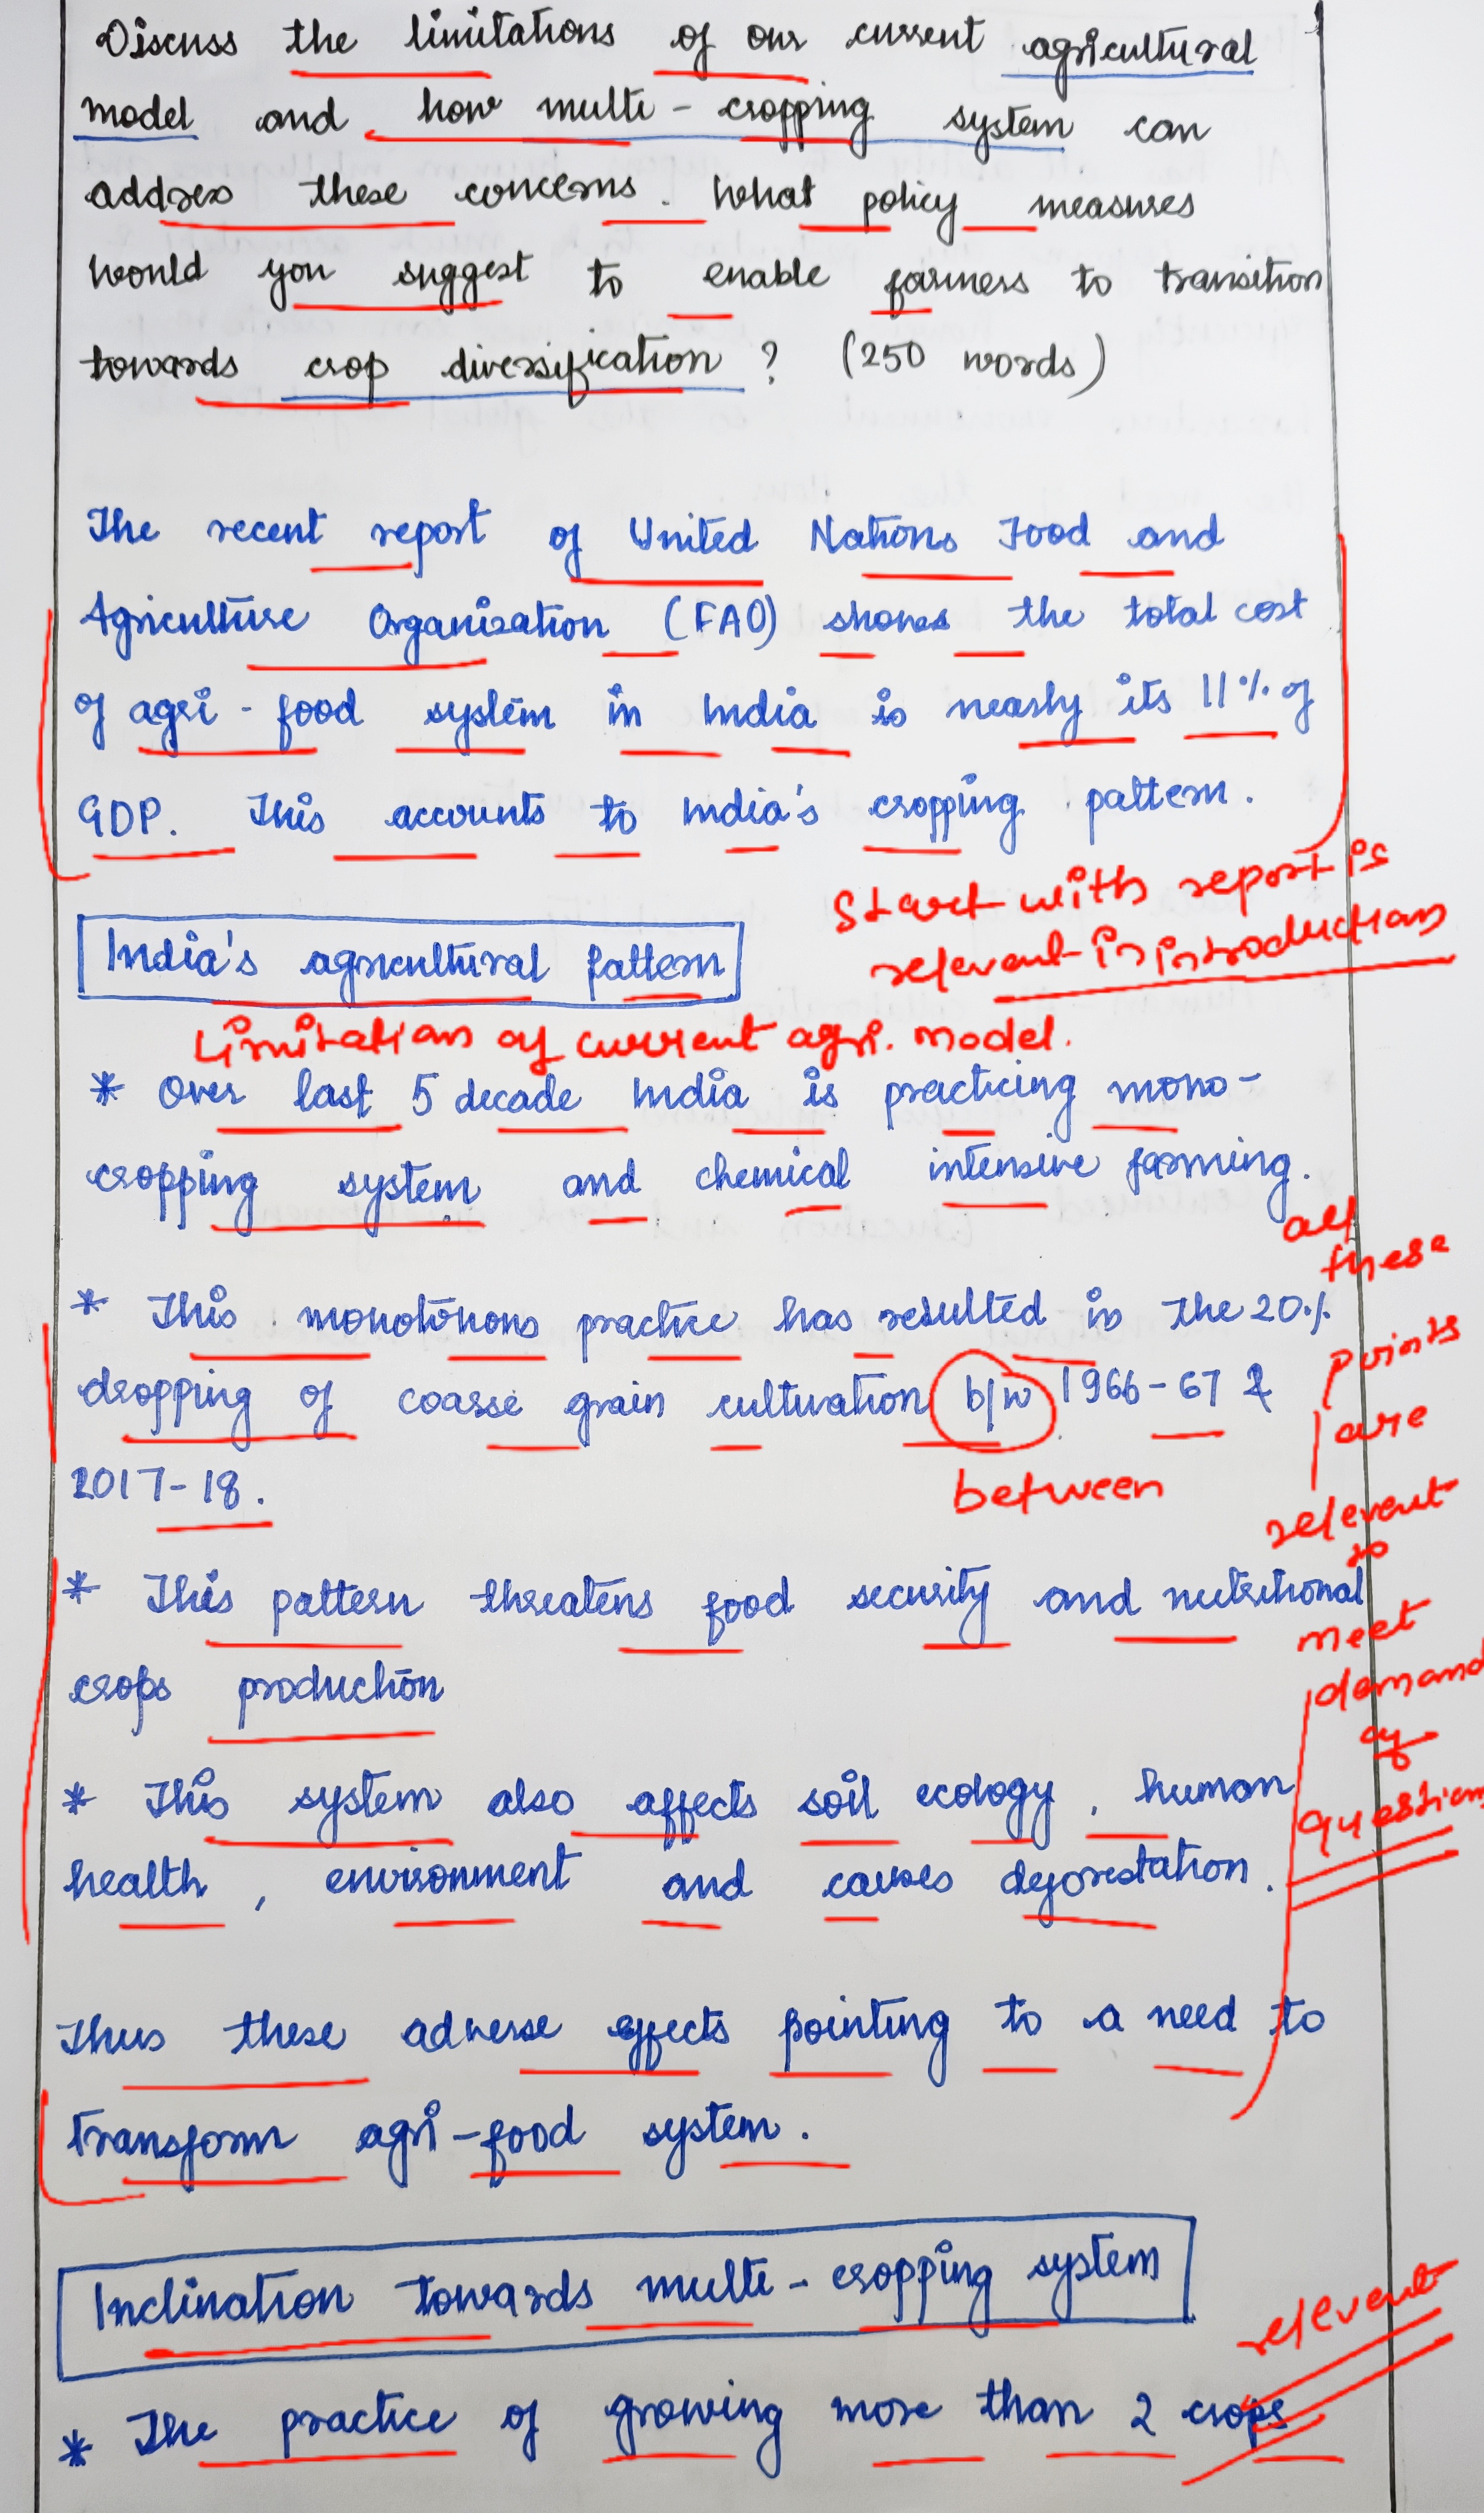 Discuss the limitations of our current agricultural
model and how multi - cropping system can
address these concerns. What policy measures
would you suggest to enable farmers to transition
towards crop diversification ? (250 words)
The recent report of United Nations Food and
Agriculture Organization (FAO) shows the total cost
of agri - food system in India is nearly its 11% of
GDP. This accounts to India's cropping pattern.
Start with report is
relevent in introduction
India's agricultural pattern
Limitation of current agri. model.
* Over last 5 decade India is practicing mono-
cropping system and chemical intensive farming.
all
these
* This monotonous practice has resulted in the 20%
points
dropping of coarse grain cultivation b/w 1966-67 &
are
2017-18.
between
relevent
to
* This pattern threatens food security and nutritional
meet
crops production
demand
of
* This system also affects soil ecology, human
question
health, environment and causes deforestation.
Thus these adverse effects pointing to a need to
transform agri-food system.
Inclination towards multi - cropping system
relevent
* The practice of growing more than 2 crops